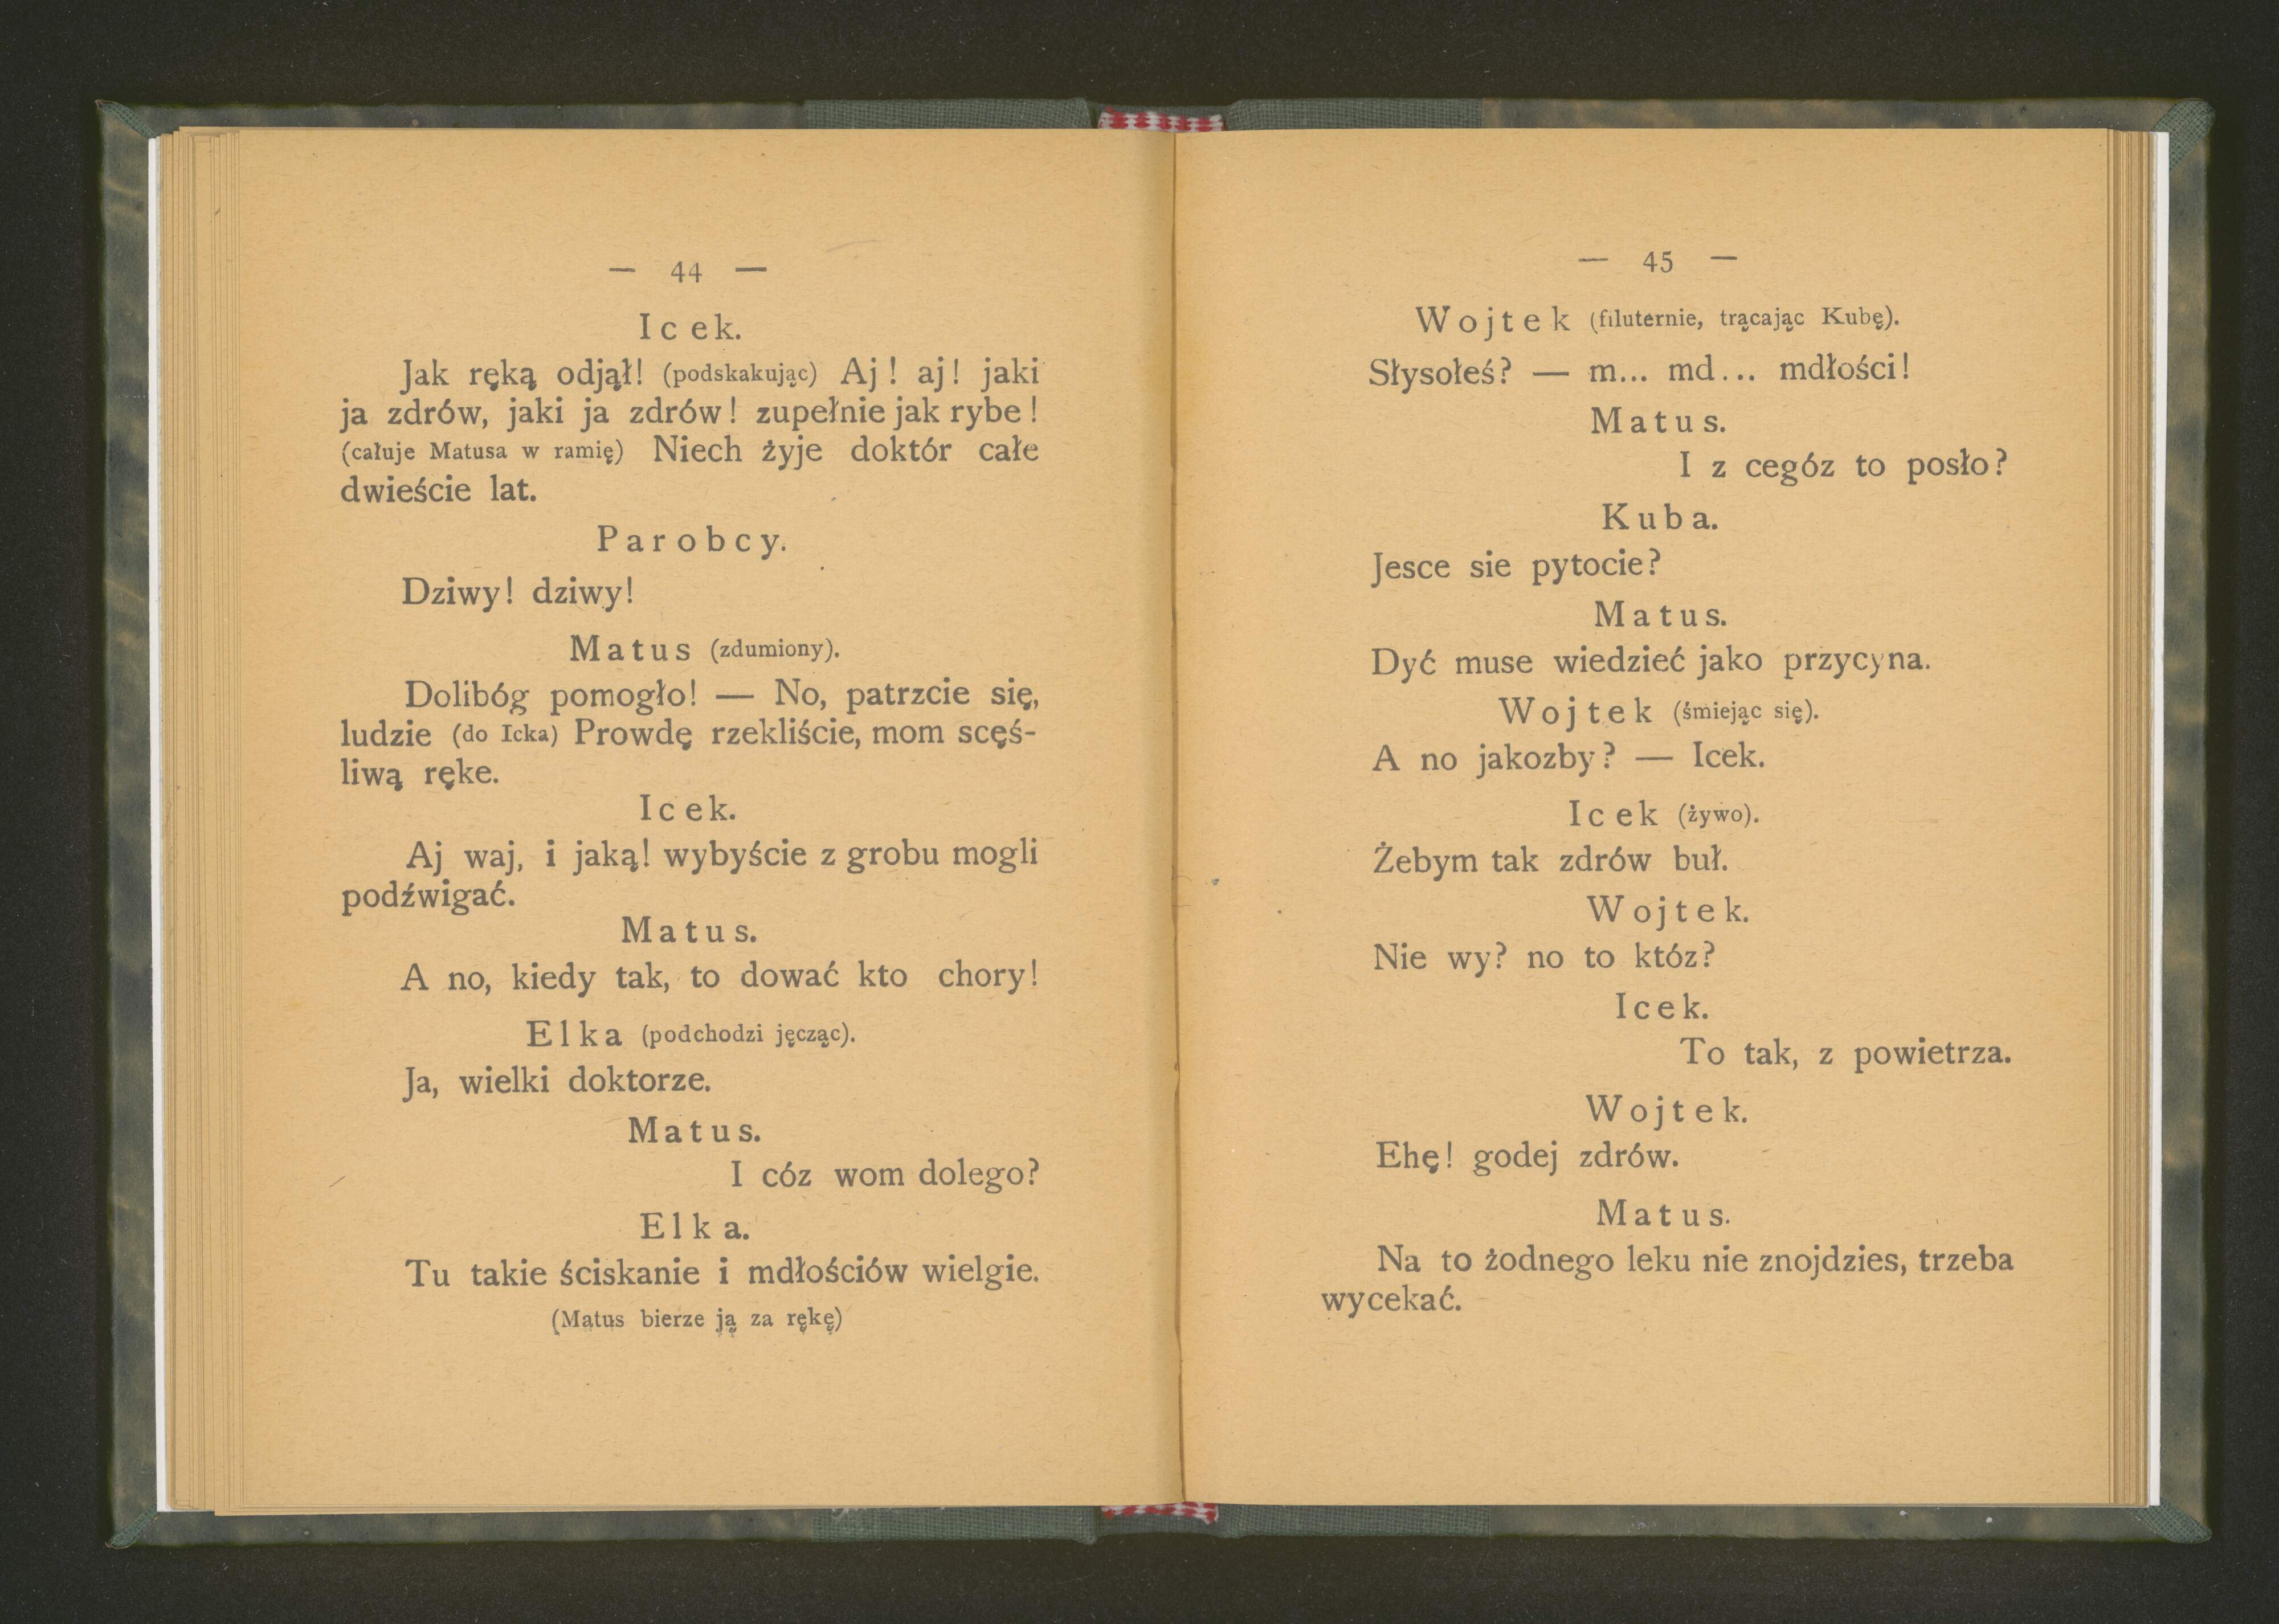 — 44 —
Icek.
Jak ręką odjął! (podskakując) Aj! aj! jaki
ja zdrów, jaki ja zdrów! zupełnie jak rybe!
(całuje Matusa w ramię) Niech żyje doktór całe
dwieście lat.
Parobcy.
Dziwy! dziwy!
Matus (zdumiony).
Dolibóg pomogło! — No, patrzcie się,
ludzie (do Icka) Prowdę rzekliście, mom scęś-
liwą ręke.
Icek.
Aj waj, i jaką! wybyście z grobu mogli
podźwigać.
Matus.
A no, kiedy tak, to dować kto chory!
Elka (podchodzi jęcząc).
Ja, wielki doktorze.
Matus.
I cóz wom dolego?
Elka.
Tu takie ściskanie i mdłościów wielgie.
(Matus bierze ją za rękę)
— 45 —
Wojtek (filuternie, trącając Kubę).
Słysołeś? — m... md... mdłości!
Matus.
I z cegóz to posło?
Kuba.
Jesce sie pytocie?
Matus.
Dyć muse wiedzieć jako przycyna.
Wojtek (śmiejąc się).
A no jakozby? — Icek.
Icek (żywo).
Żebym tak zdrów buł.
Wojtek.
Nie wy? no to któz?
Icek.
To tak, z powietrza.
Wojtek.
Ehę! godej zdrów.
Matus.
Na to żodnego leku nie znojdzies, trzeba
wycekać.